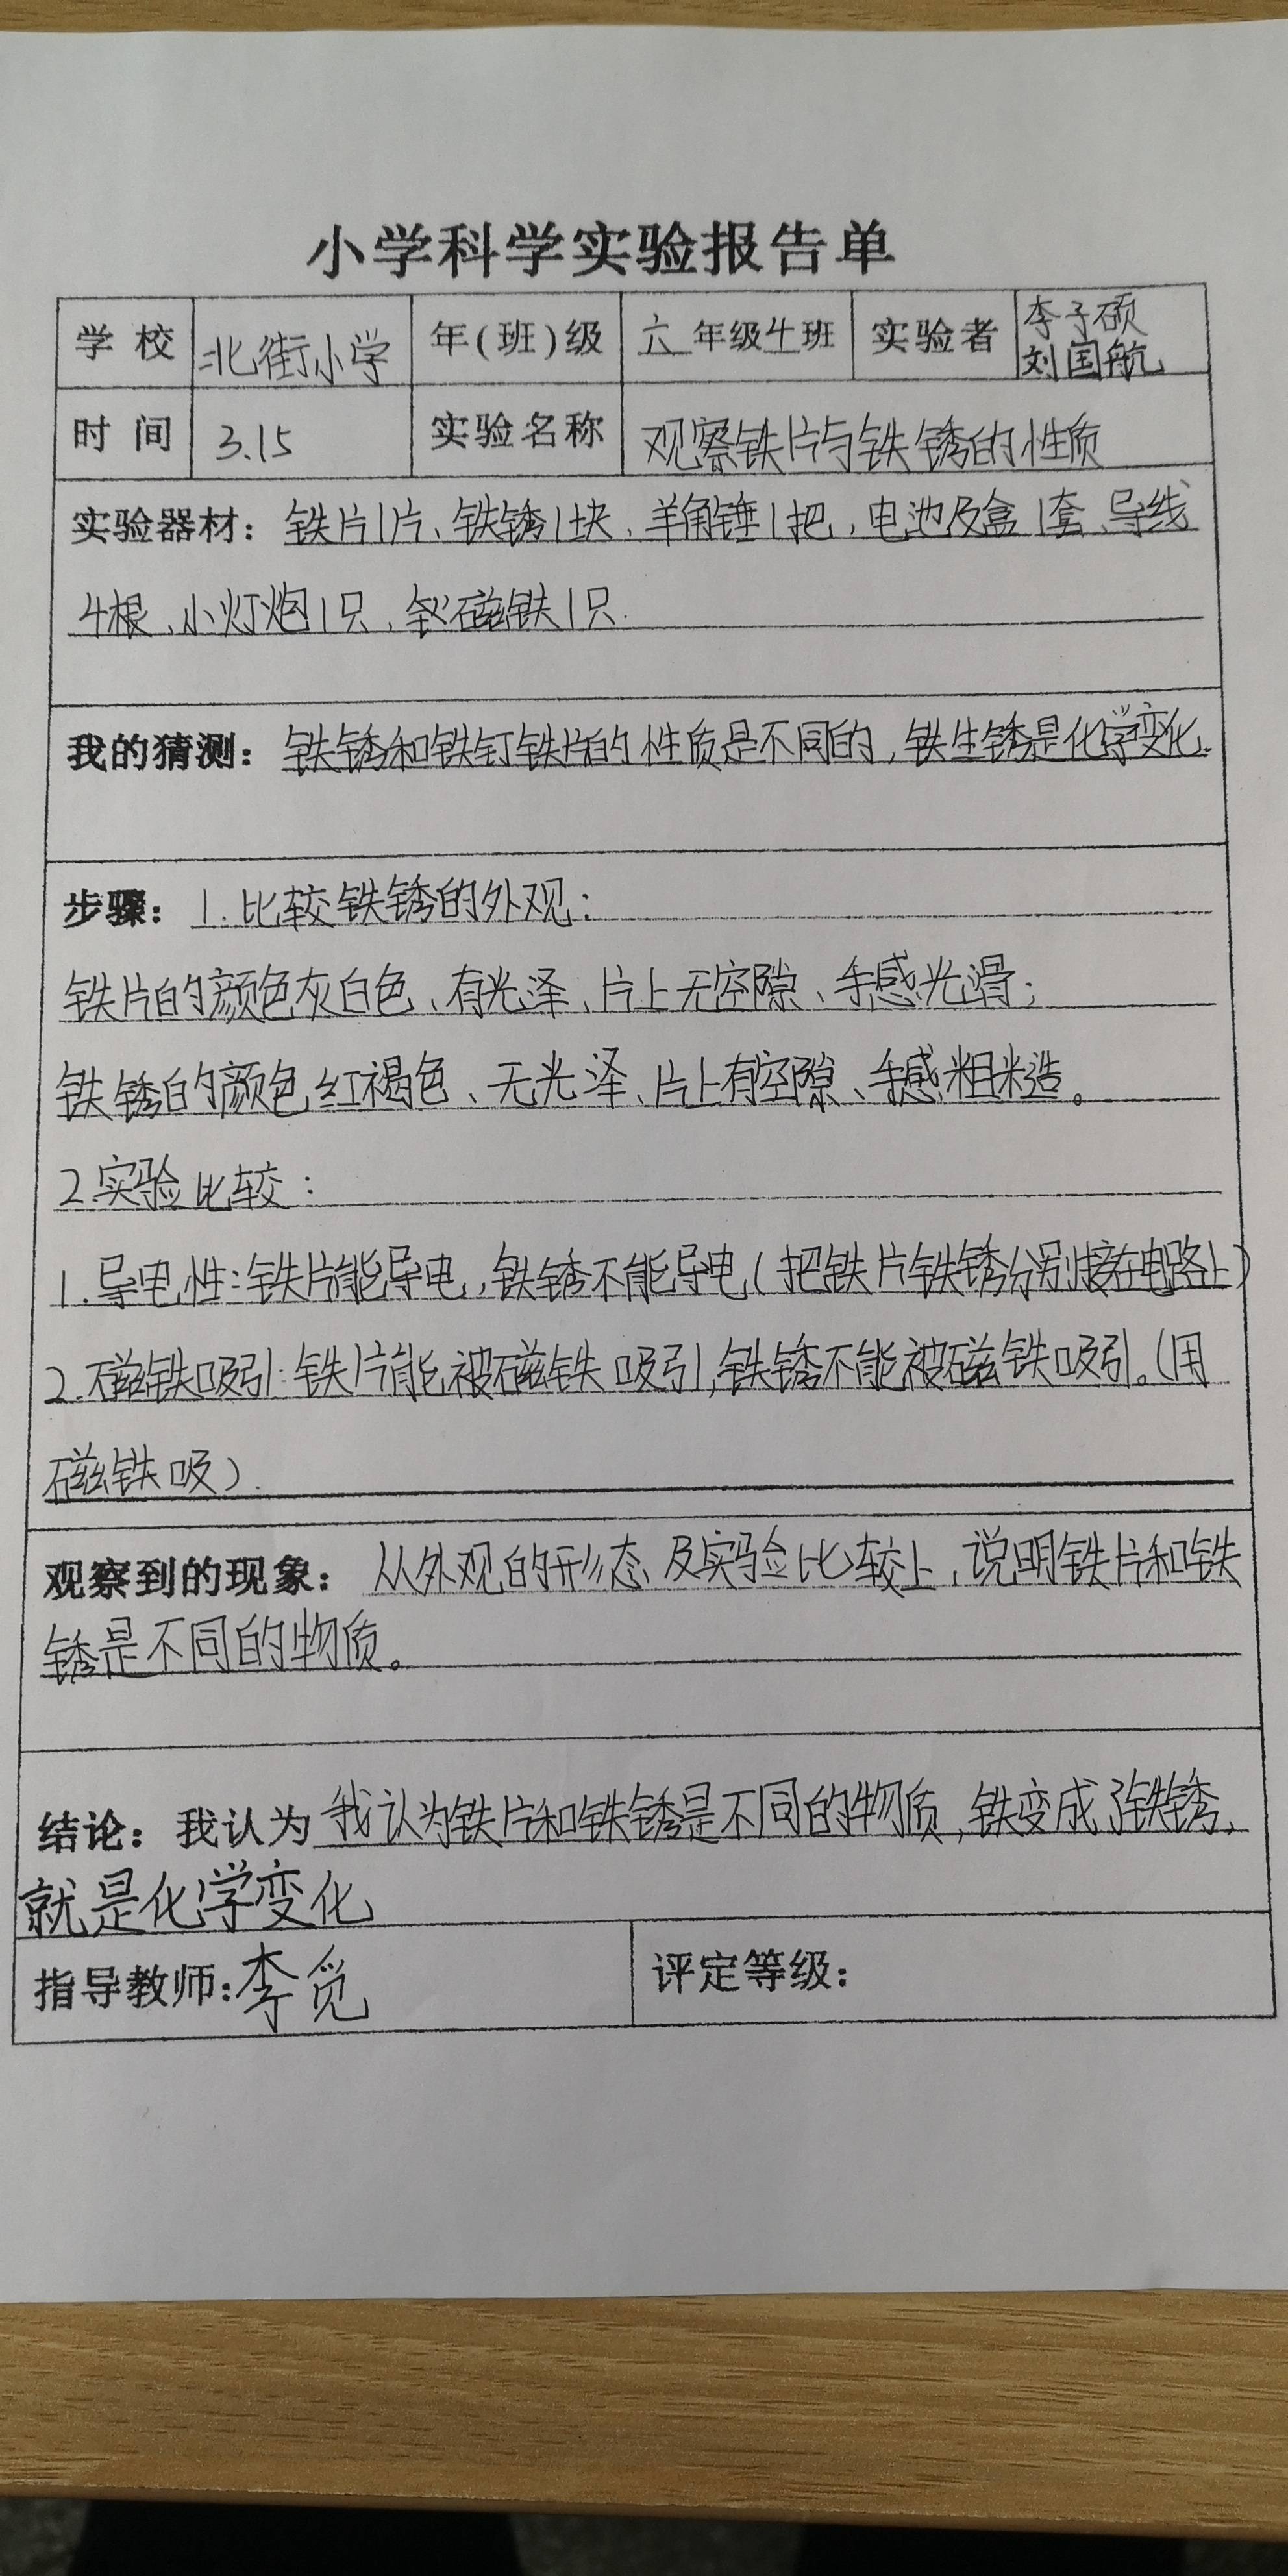 小学科学实验报告单
学校 北街小学 年(班)级 六年级4班 实验者 李子硕
刘国航
时间 3.15 实验名称 观察铁片与铁锈的性质
实验器材: 铁片1片、铁锈1块、羊角锤1把、电池及盒1套、导线
4根、小灯炮1只、钦磁铁1只.
我的猜测: 铁锈和铁钉铁片的性质是不同的,铁生锈是化学变化.
步骤: 1.比较铁锈的外观:
铁片的颜色灰白色、有光泽、片上无空隙、手感光滑;
铁锈的颜色红褐色、无光泽、片上有空隙、手感粗糙。
2.实验比较:
1.导电性:铁片能导电,铁锈不能导电(把铁片铁锈分别接在电路上)
2.磁铁吸引:铁片能被磁铁吸引,铁锈不能被磁铁吸引。(用
磁铁吸).
观察到的现象: 从外观的形态及实验比较上,说明铁片和铁
锈是不同的物质。
结论: 我认为 我认为铁片和铁锈是不同的物质,铁变成了铁锈,
就是化学变化
指导教师:李觅 评定等级: